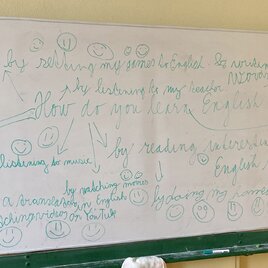 by setting my games to English
by listening to my teacher
How do you learn English
listening to music
by reading interesting
English
by watching movies
a translator in English
by doing my
videos on YouTube